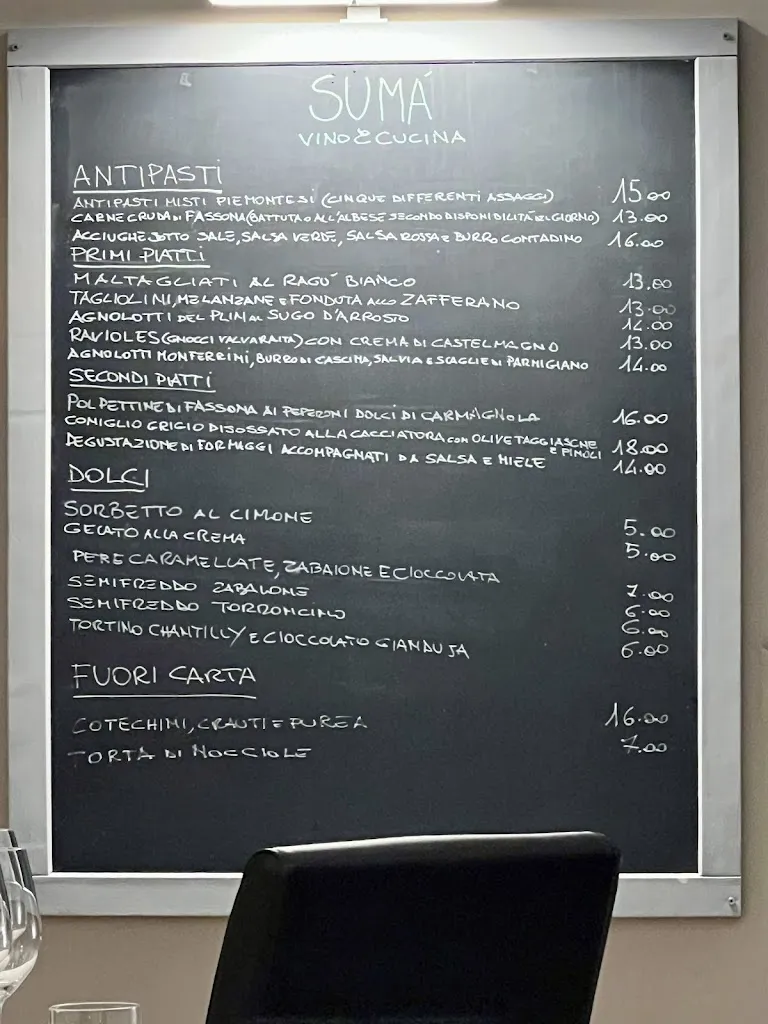 SUMÁ
VINO & CUCINA
ANTIPASTI
ANTIPASTI MISTI PIEMONTESI (CINQUE DIFFERENTI ASSAGGI) 15.00
CARNE CRUDA DI FASSONA (BATTUTA O ALL'ALBESE SECONDO DISPONIBILITÀ DEL GIORNO) 13.00
ACCIUGHE SOTTO SALE, SALSA VERDE, SALSA ROSSA E BURRO CONTADINO 16.00
PRIMI PIATTI
MALTAGLIATI AL RAGU' BIANCO 13.00
TAGLIOLINI, MELANZANE E FONDUTA ALLO ZAFFERANO 13.00
AGNOLOTTI DEL PLIN AL SUGO D'ARROSTO 14.00
RAVIOLES (GNOCCI VALVARAITA) CON CREMA DI CASTELMAGNO 13.00
AGNOLOTTI MONFERRINI, BURRO DI CASCINA, SALVIA E SCAGLIE DI PARMIGIANO 14.00
SECONDI PIATTI
POLPETTINE DI FASSONA AI PEPERONI DOLCI DI CARMAGNOLA 16.00
CONIGLIO GRIGIO DISOSSATO ALLA CACCIATORA CON OLIVE TAGGIASCHE E PINOLI 18.00
DEGUSTAZIONE DI FORMAGGI ACCOMPAGNATI DA SALSA E MIELE 14.00
DOLCI
SORBETTO AL LIMONE 5.00
GELATO ALLA CREMA 5.00
PERE CARAMELLATE, ZABAIONE E CIOCCOLATA 7.00
SEMIFREDDO ZABAIONE 6.00
SEMIFREDDO TORRONCINO 6.00
TORTINO CHANTILLY E CIOCCOLATO GIANDUJA 6.00
FUORI CARTA
COTECHINI, CRAUTI E PUREA 16.00
TORTA DI NOCCIOLE 7.00